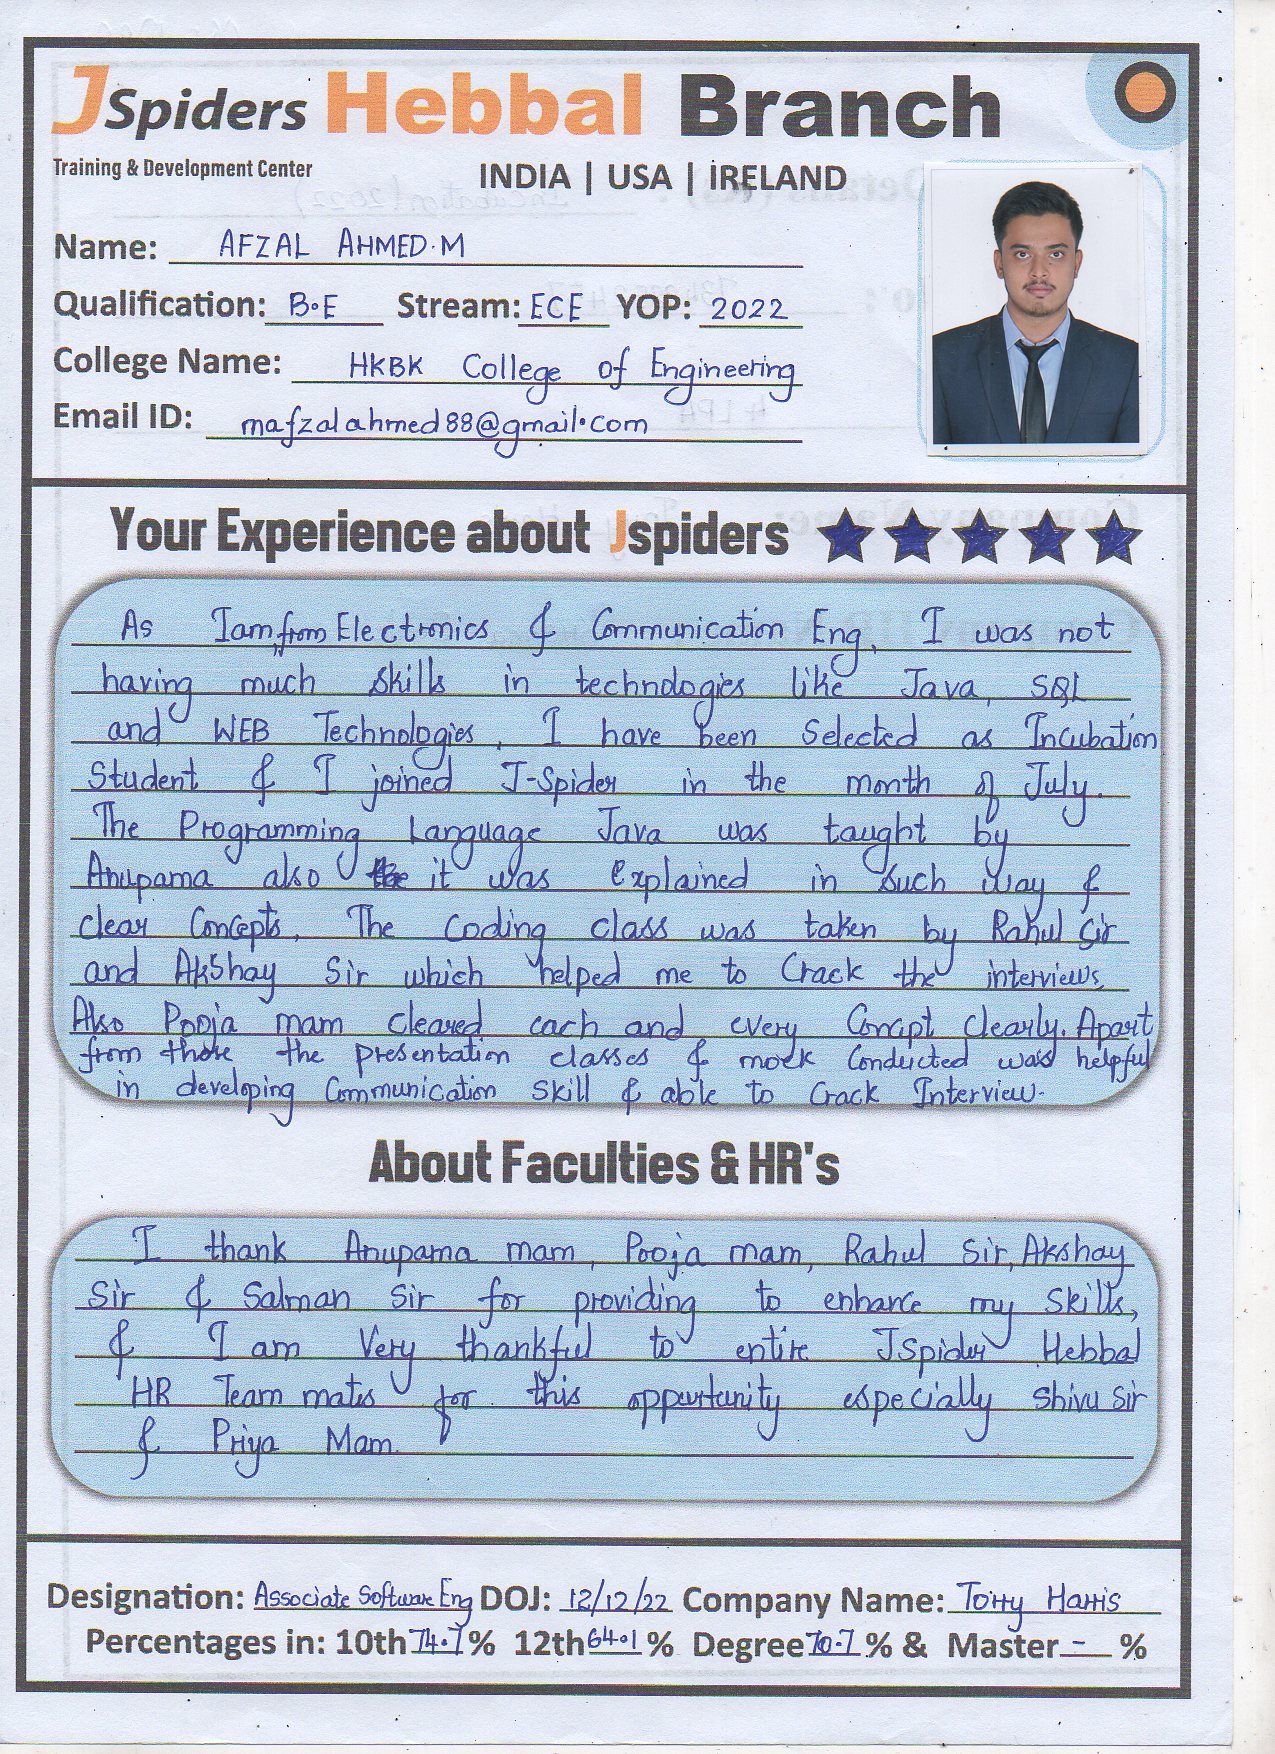 JSpiders Hebbal Branch
Training & Development Center
INDIA | USA | IRELAND
Name: AFZAL AHMED.M
Qualification: B.E Stream: ECE YOP: 2022
College Name: HKBK College of Engineering
Email ID: mafzalahmed88@gmail.com
Your Experience about Jspiders
As I am from Electronics & Communication Eng, I was not
having much skills in technologies like Java, SQL
and WEB Technologies, I have been Selected as Incubation
Student & I joined J-Spider in the month of July.
The Programming Language Java was taught by
Anupama also it was Explained in such way &
clear Concepts, The Coding class was taken by Rahul Sir
and Akshay Sir which helped me to Crack the interviews,
Also Pooja mam cleared each and every Concept clearly. Apart
from those the presentation classes & mock Conducted was helpful
in developing Communication Skill & able to Crack Interview.
About Faculties & HR's
I thank Anupama mam, Pooja mam, Rahul Sir, Akshay
Sir & Salman Sir for providing to enhance my Skills,
& I am Very thankful to entire JSpider Hebbal
HR Team mates for this oppurtunity especially Shivu Sir
& Priya Mam.
Designation: Associate Software Eng DOJ: 12/12/22 Company Name: Torry Harris
Percentages in: 10th 74.7 % 12th 64.1 % Degree 70.7 % & Master - %